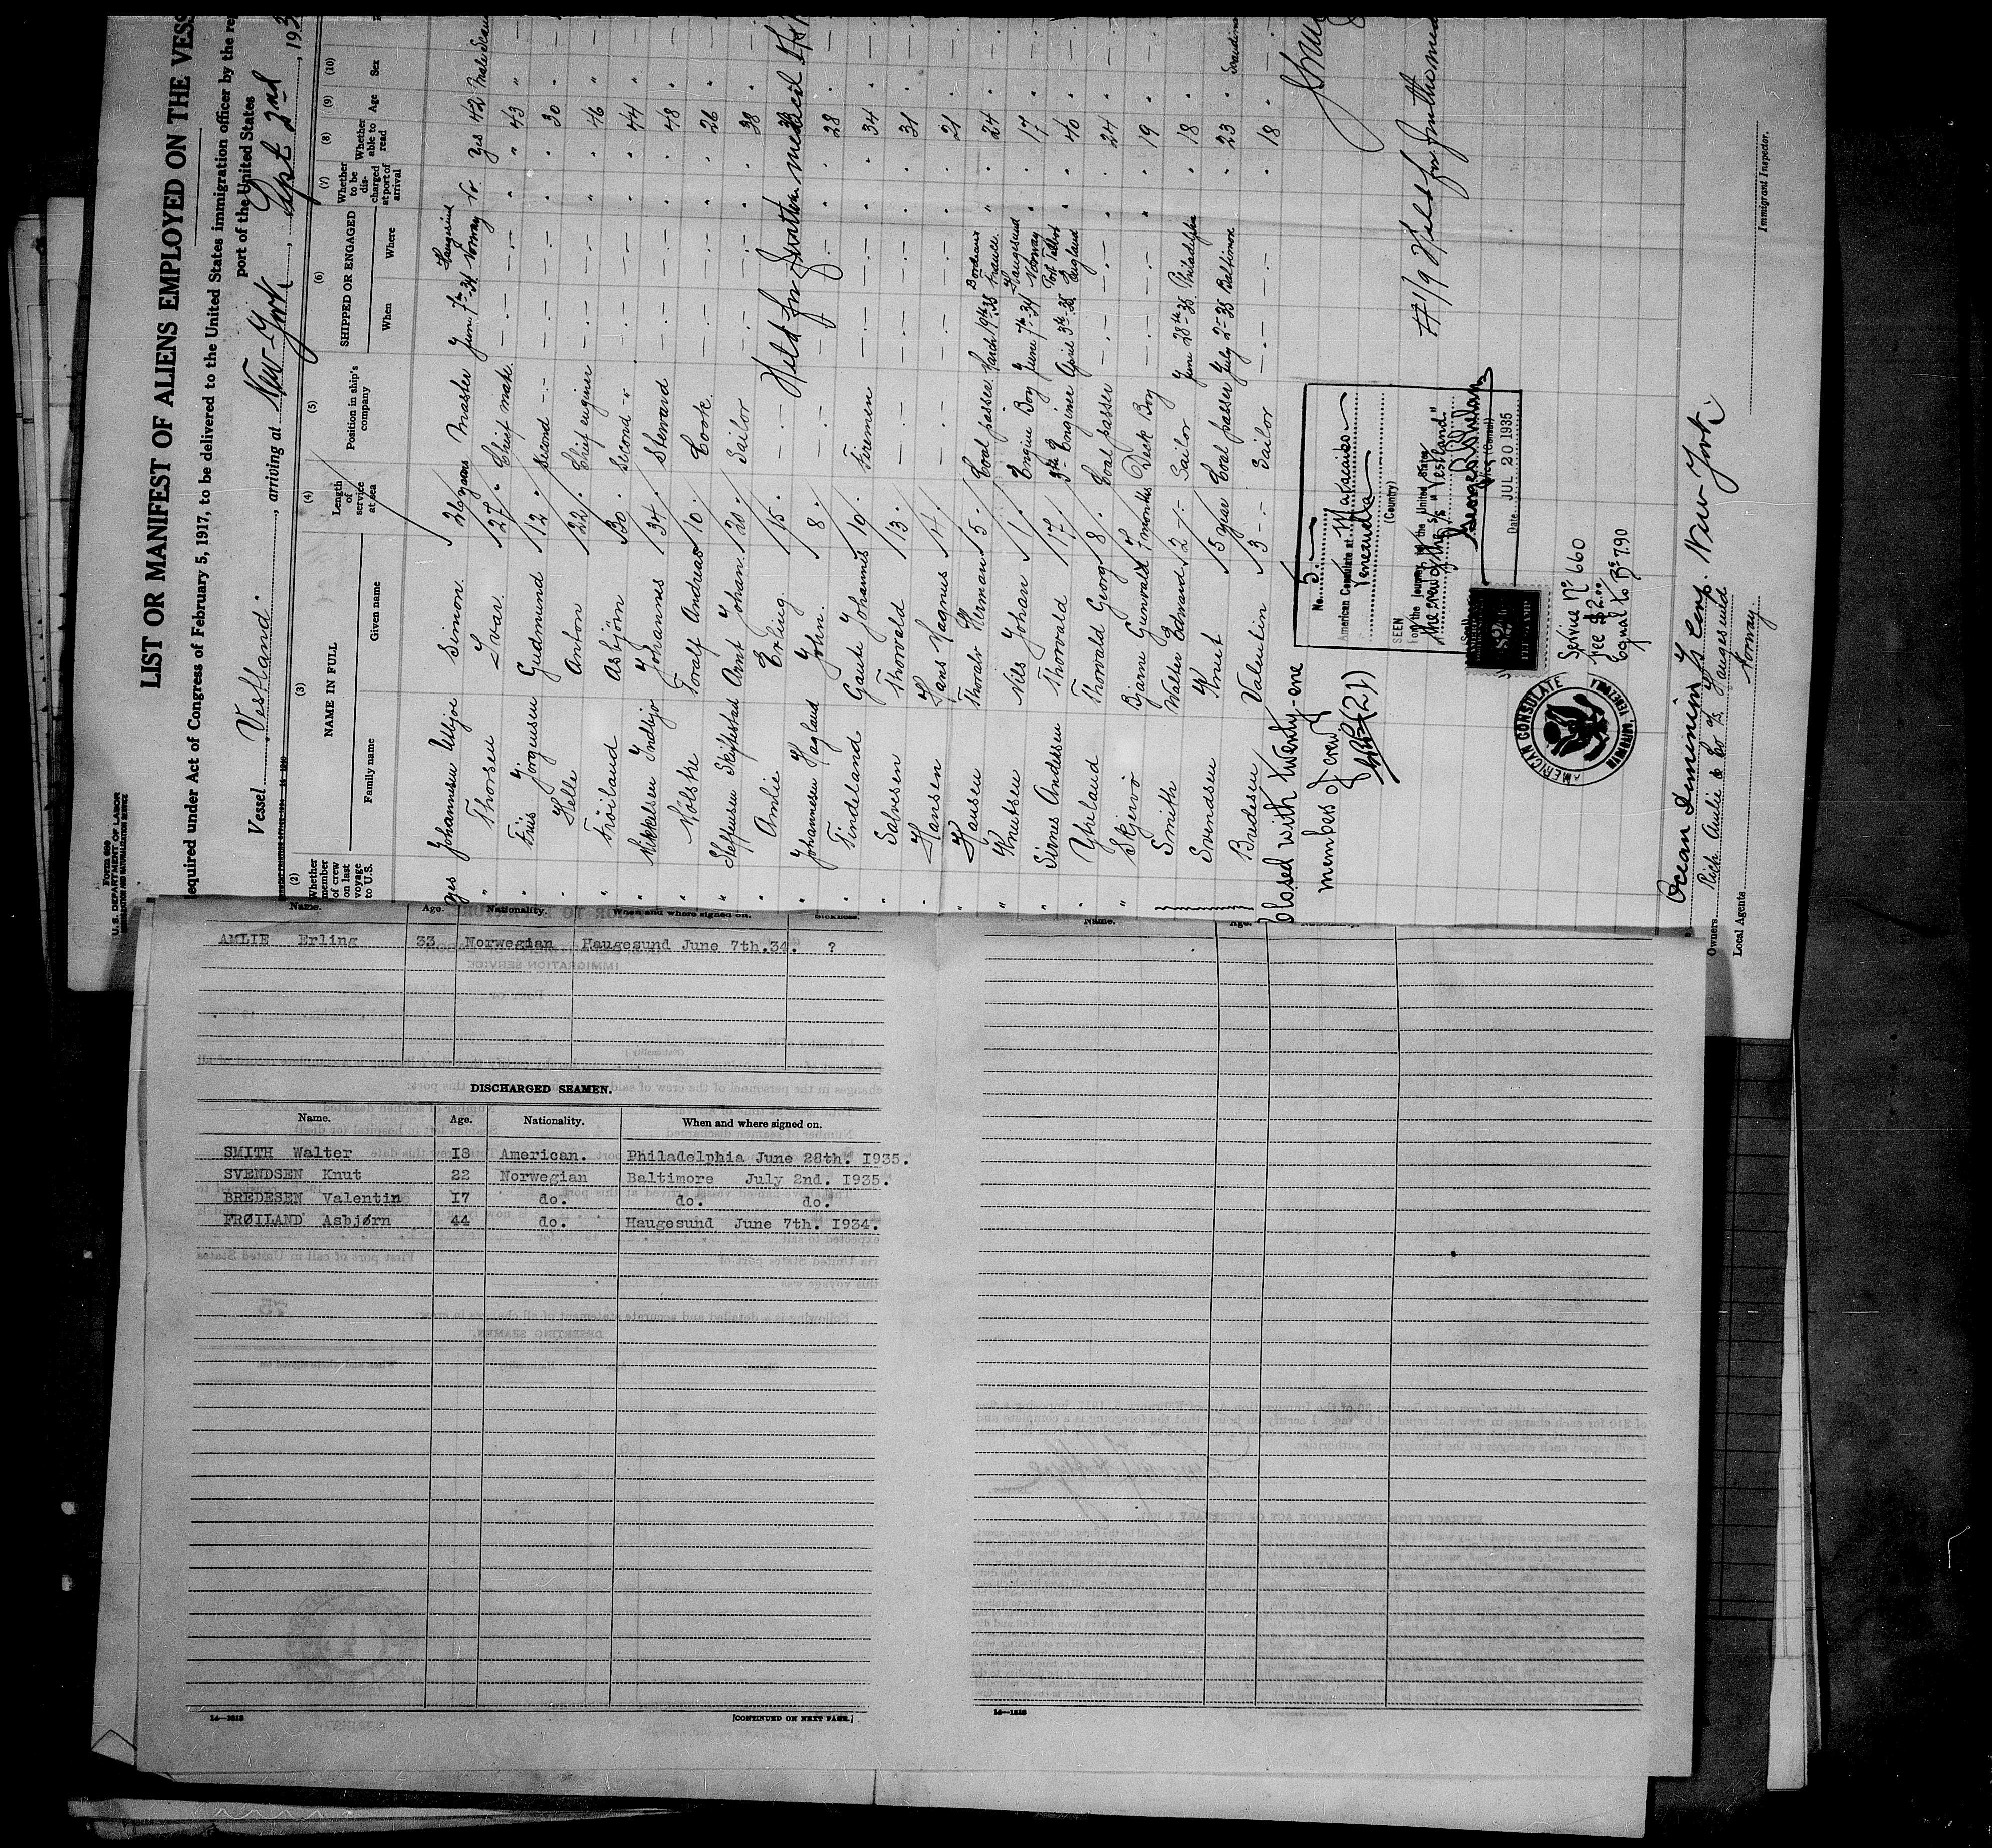 Form 680
U. S. DEPARTMENT OF LABOR
IMMIGRATION AND NATURALIZATION SERVICE
LIST OR MANIFEST OF ALIENS EMPLOYED ON THE VESS
equired under Act of Congress of February 5, 1917, to be delivered to the United States immigration officer by the re
port of the United States
Vessel Vestland , arriving at New-York , Sept 2nd , 193
(2) (3) (4) (5) (6) (7) (8) (9) (10)
Whether member of crew on last voyage to U.S.
NAME IN FULL
Family name Given name
Length of service at sea
Position in ship's company
SHIPPED OR ENGAGED
When Where
Whether to be discharged at port of arrival
Whether able to read
Age Sex
yes Johannesen Simon 26 years Master June 7th-34 Haugesund Norway No. Yes 42 Male
" Thorsen Ivar 27 " Chief mate —.— —.— " " 43 "
" Friis Jörgensen Gudmund 12 " Second —.— —.— —.— " " 30 "
" Helle Anton 22 " Chief enginer —.— —.— " " 46 "
" Fröiland Asbjörn 30 " Second —.— —.— " " 44 "
" Mikkelsen Indbjo Johannes 34 " Steward —.— —.— " " 48 "
" Nölske Toralf Andreas 10 " Cook —.— —.— " " 26 "
" Steffensen Skiftestad Arnt Johan 20 " Sailor —.— —.— " " 38 "
" Amlie Erling 15 " —.— Held for further medical
" Johannesen Hagland John 8 " —.— —.— —.— " " 28 "
" Tindeland Gaute Johannes 10 " Firemen —.— —.— " " 34 "
" Salvesen Thorvald 13 " —.— —.— —.— " " 31 "
" Hansen Hans Magnus —.— —.— —.— " " 21 "
" Hausen Thoralv Herman 5 " Coal passer March 19th-35 Bordeaux France " " 24 "
" Knutsen Nils Johan 1 " Engine Boy June 7th-34 Haugesund Norway " " 17 "
" Sirnes Andresen Thorvald 17 " 3rd Enginer April 3rd-35 Port Talbot England " " 40 "
" Ytreland Thorvald Georg 8 " Coal passer —.— —.— " " 24 "
" Skjervö Bjarne Gunvald 7 months Deck Boy —.— —.— " " 19 "
Smith Walter Edward 2 —.— Sailor June 28th-35 Philadelphia " " 18 "
Svendsen Knut 5 year Coal passer July 2-35 Baltimore " " 23 "
Bredesen Valentin 3 —.— Sailor —.— —.— " " 18 "
Closed with twenty-one
members of crew
(21)
No. 5.—
American Consulate at Maracaibo
Venezuela
(Country)
SEEN
For the journey to the United States
the crew of the s/s "Vestland"
Vice (Consul)
Date JUL 20 1935
(Seal)
$2
FEE STAMP
AMERICAN CONSULATE
MARACAIBO, VENEZUELA
Service No 660
Fee $2.00
Equal to Bs 7.90
#19 Held for further med
Ocean Dominion S/S Corp. New-York
Owners Rich. Amlie & Co A/S Haugesund
Norway
Local Agents
Immigrant Inspector.
Name. Age. Nationality. When and where signed on. Sickness.
AMLIE Erling 33 Norwegian Haugesund June 7th.34. ?
DISCHARGED SEAMEN.
Name. Age. Nationality. When and where signed on.
SMITH Walter I8 American. Philadelphia June 28th. I935.
SVENDSEN Knut 22 Norwegian Baltimore July 2nd. I935.
BREDESEN Valentin I7 do. do. do.
FRØILAND Asbjørn 44 do. Haugesund June 7th. I934.
14—1518 [CONTINUED ON NEXT PAGE.]
Name. Age.
14—1518